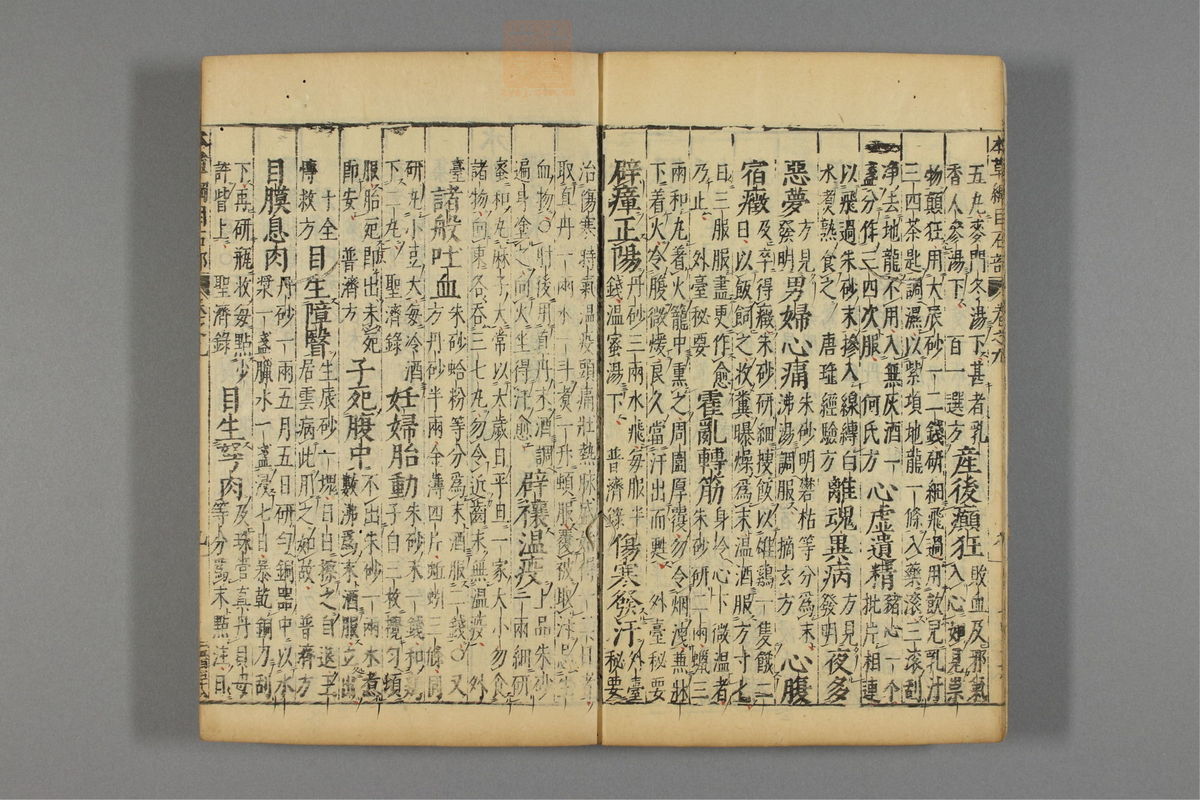 五丸麥門冬湯下甚者乳
香人參湯下 百一選方 產後癲狂 敗血及邪氣
入心如見祟
物顛狂用大辰砂一二錢研細飛過用飲兒乳汁
三四茶匙調濕以紫項地龍一條入藥滾三滾刮
净去地龍不用入無灰酒一
盞分作三四次服 何氏方 心虛遺精 猪心一个
批片相連
以飛過朱砂末摻入線縛白
水煑熟食之 唐瑤經驗方 離魂異病 方見
發明 夜多
惡夢 方見
發明 男婦心痛 朱砂明礬枯等分爲末
沸湯調服 摘玄方 心腹
宿癥 及卒得癥朱砂研細搜飯以雄鷄一隻餓二
日以飯飼之收糞曝燥爲末溫酒服方寸匕
日三服服盡更作愈
乃止 外臺秘要 霍亂轉筋 身冷心下微溫者
朱砂研二兩蠟三
兩和丸着火籠中熏之周圍厚覆勿令烟洩兼牀
下着火令腹微煖良久當汗出而甦 外臺秘要
辟瘴正陽 丹砂三兩水飛每服半
錢溫蜜湯下 普濟錄 傷寒發汗 外臺
秘要
治傷寒時氣溫疫頭痛壯熱脉盛始得一二日者
取真丹一兩水一斗煑一升頓服覆被取汗忌生
血物○肘後用真丹末酒調
遍身塗之向火坐得汗愈 辟禳溫疫 上品朱砂
一兩細研
蜜和丸麻子大常以太歲日平旦一家大小勿食
諸物向東各吞三七丸勿令近齒永無溫疫 外
臺 諸般吐血 朱砂蛤粉等分爲末酒服二錢○又
方丹砂半兩金薄四片蚯蚓三條同
研丸小豆大每冷酒
下二丸 聖濟錄 妊婦胎動 朱砂末一錢和雞
子白三枚攪勻頓
服胎死即出未死
即安 普濟方 子死腹中 不出朱砂一兩水煑
數沸爲末酒服立出
十全
博救方 目生障瞖 生辰砂一塊日日擦之自退王
居雲病此用之如故 普濟方
目膜息肉 丹砂一兩五月五日研勻銅器中以水
漿一盞臘水一盞浸七日暴乾銅刀刮
下再研瓶收每點少
許眥上○聖濟錄 目生弩肉 及珠管真丹貝母
等分爲末點注日